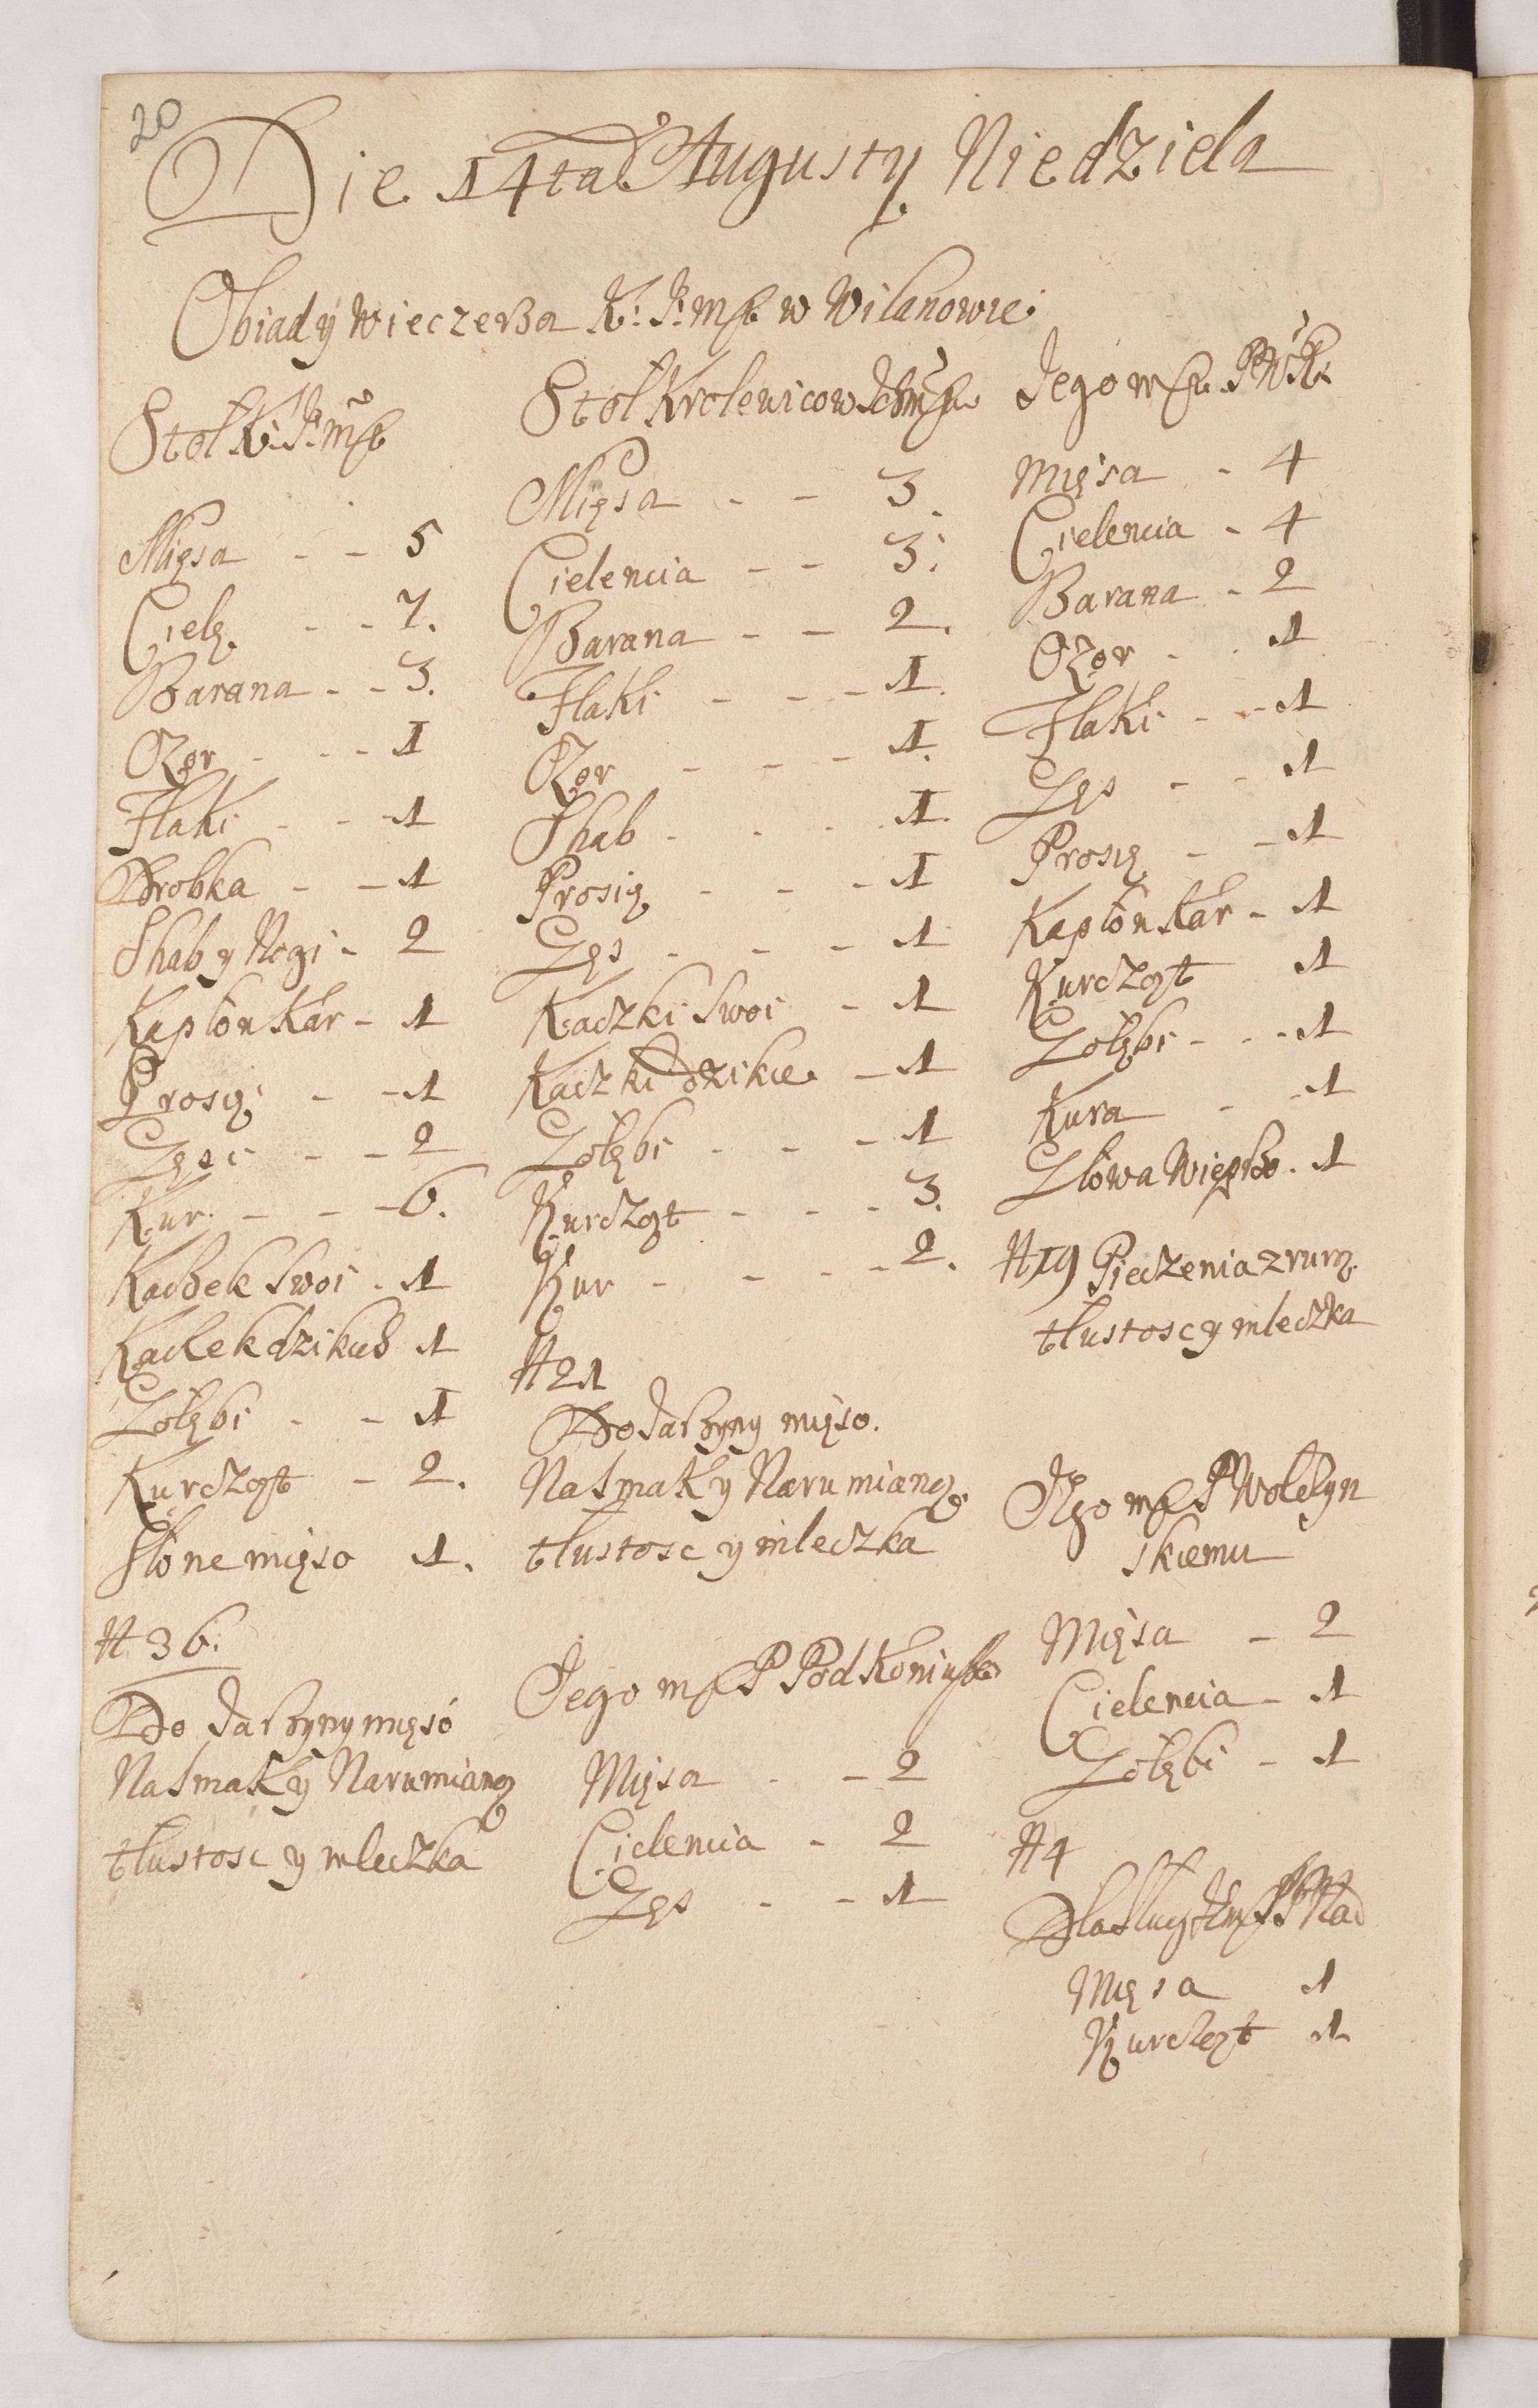 20
Die 14ta Augusty Niedziela
Obiad y Wieczerza K: J: mſći w Wilanowie
Stoł K: J: mſći
Mięsa - - 5
Cielę. - - 7.
Barana - - 3.
Ozor - - - 1
Flaki - - - 1
Drobka - - 1
Shab y Nogi - 2
Kapłon Kar - 1
Prosię - - 1
Gęsi - - 2
Kur. - - - 6.
Kaczek swoi - 1
Kaczek dzikich 1
Gołębi - - 1
Kurcząt - 2.
Słone mięso 1.
# 36.
Do Jarzyny mięso
Na smak y Na rumianą
tłustosc y mleczka
Stoł Krolewicow Ichmſć
Mięsa - - 3.
Cielencia - - 3.
Barana - - 2.
Flaki - - - 1.
Ozor - - - 1.
Shab - - - 1.
Prosię - - - 1
Gęs - - - 1
Kaczki swoi - 1
Kaczki dzikie - 1
Gołębi - - - 1
Kurcząt - - - 3.
Kur - - - - 2.
# 21
Do Jarzyny mięso.
Na smak y Na rumianą
tłustosc y mleczka
Jego mſć P Podkoniusze
Mięsa - - 2
Cielencia - 2
Gęs - - 1
Jego mſć
Mięsa - 4
Cielencia - 4
Barana - 2
Ozor - - 1
Flaki - - 1
Gęs - - 1
Prosię - - 1
Kapłon Kar - 1
Kurcząt 1
Gołębi - - - 1
Kura - - 1
Głowa Wieprzo. 1
# 19 Pieczenia z rurą
tłustosc y mleczka
Jego mſć P Wołożyn
skiemu
Mięsa - 2
Cielencia - 1
Gołębi - 1
# 4
Mięsa 1
Kurcząt 1